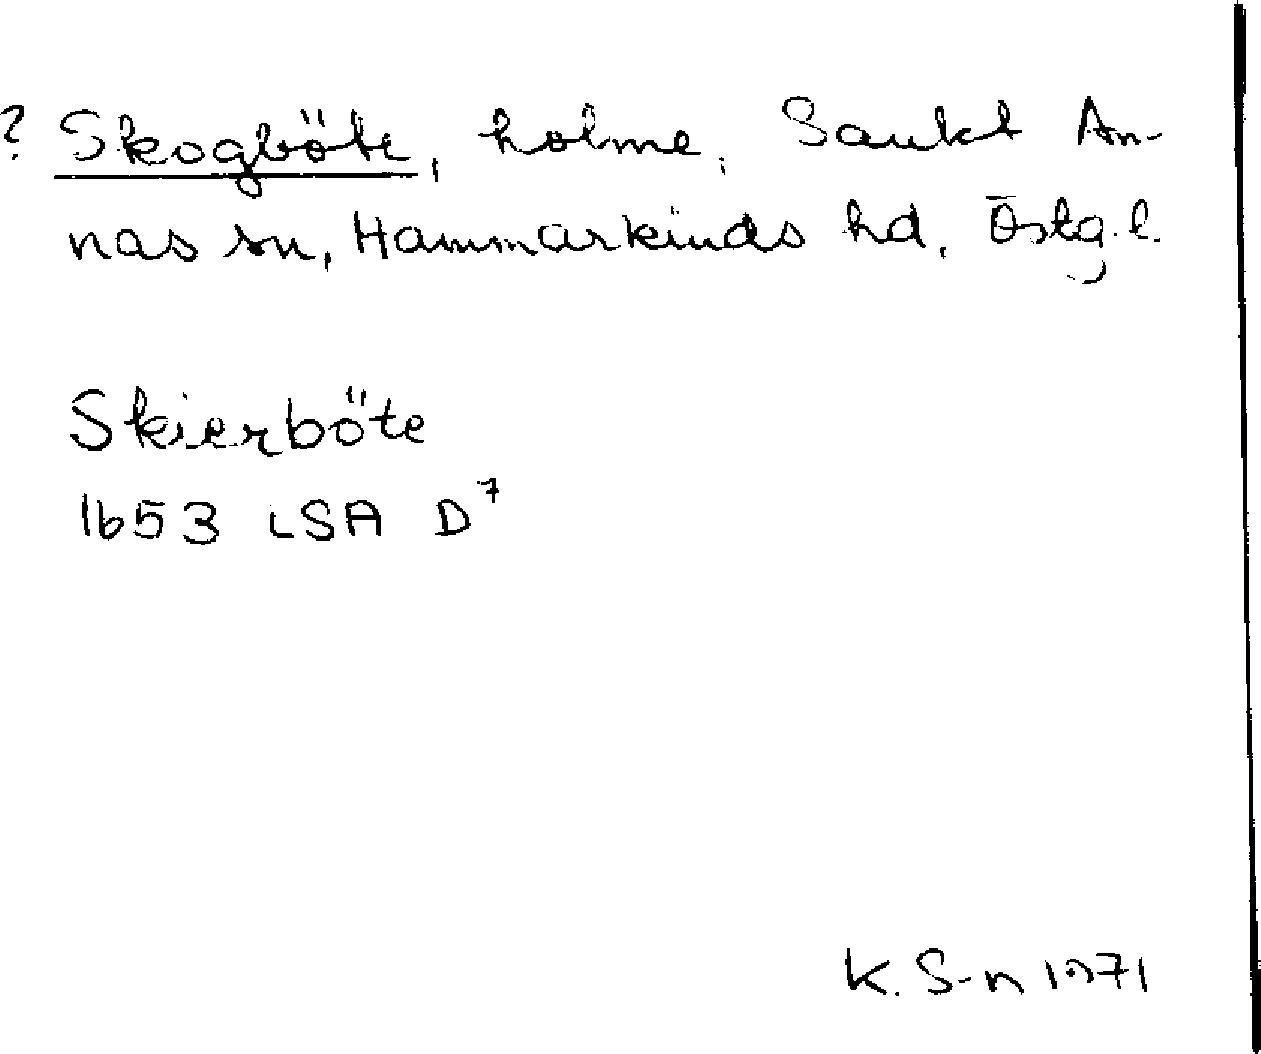 ? Skogböte, holme, Sankt An-
nas sn, Hammarkinds hd, Östg.l.
Skierböte
1653 LSA D7
K. S-n 1971